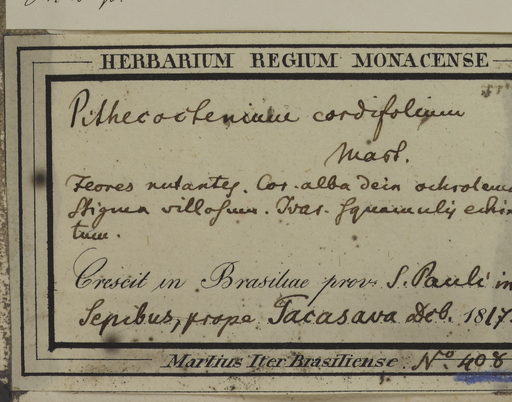 HERBARIUM REGIUM MONACENSE
Pithecoctenium cordifolium
Mart.
Flores nutantes. Cor. alba dein ochroleuc
Stigma villosum. Ovar. squamulis echin
tum.
Crescit in Brasiliae prov. S. Pauli in
Sepibus, prope Jacasava Deb. 1817.
Martius Iter Brasiliense. No. 408